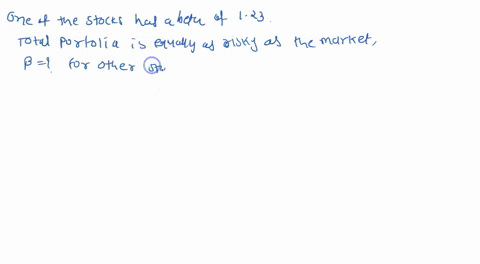 One of the stocks has a beta of 1.23.
Total Portolia is equally as risky as the market,
β=1 for other